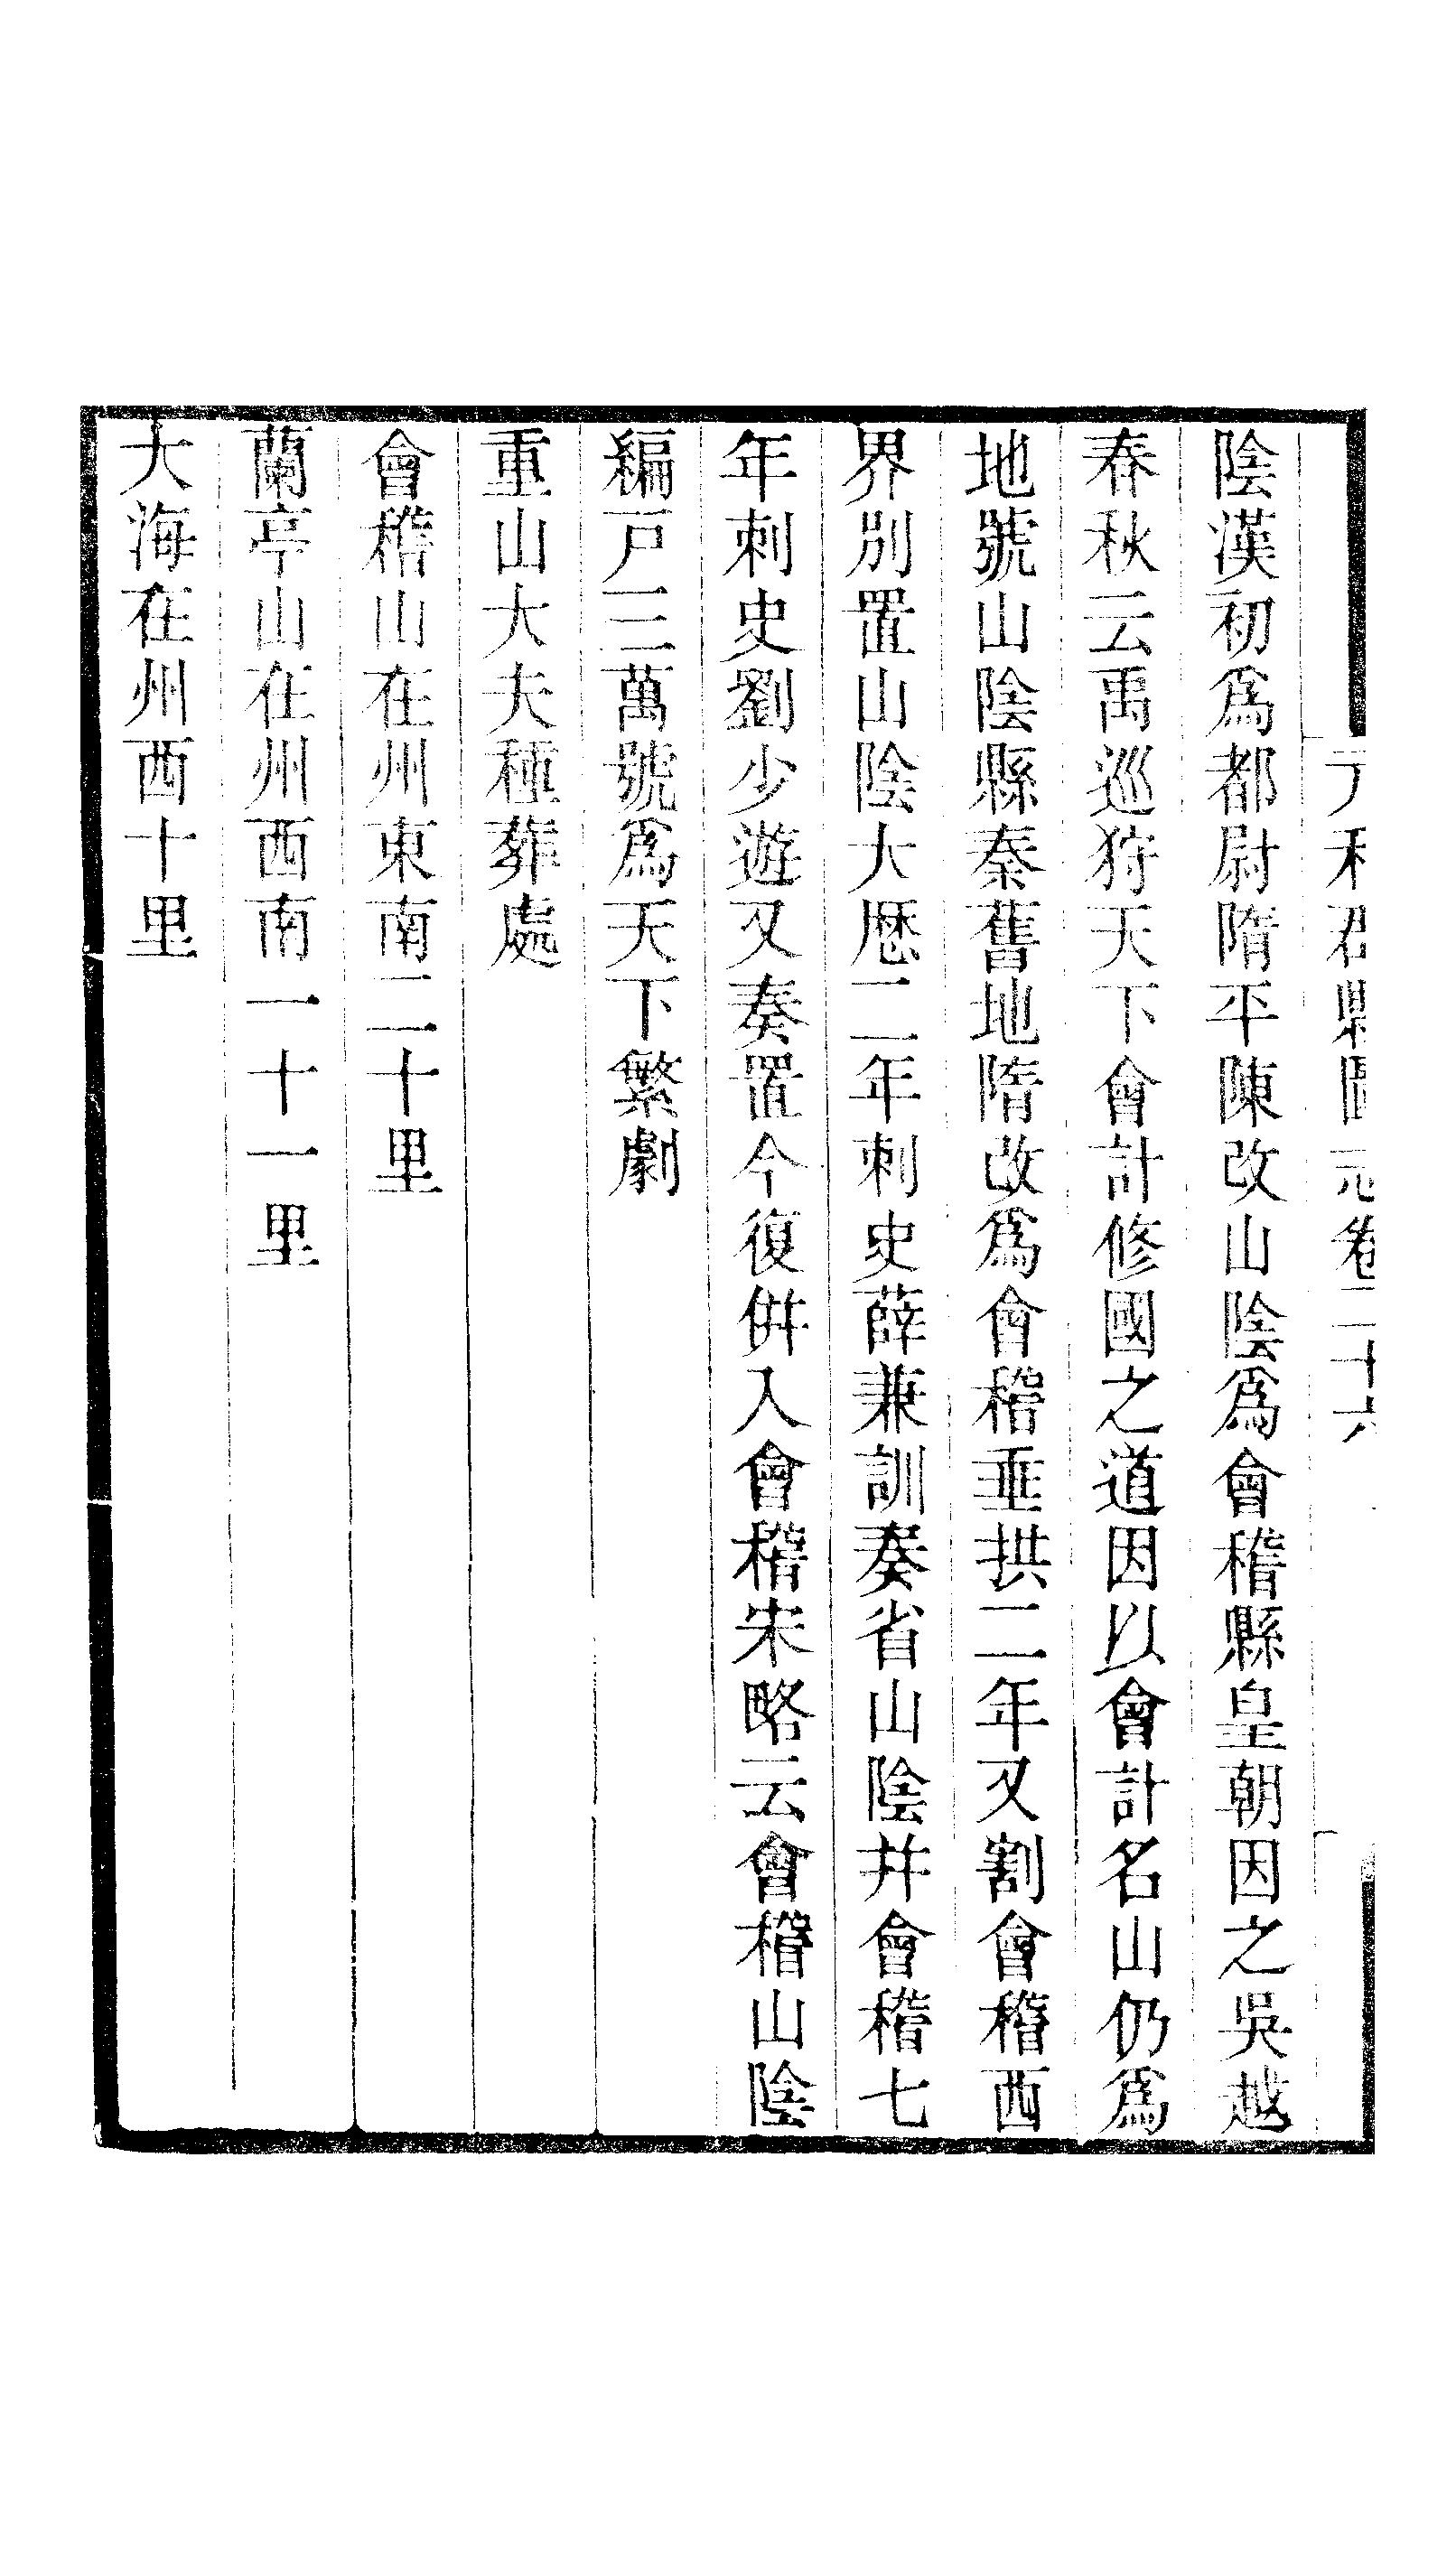 元和君縣圖志卷二十六
陰漢初爲都尉隋平陳改山陰爲會稽縣皇朝因之吳越
春秋云禹巡狩天下會計修國之道因以會計名山仍爲
地號山陰縣秦舊地隋改爲會稽垂拱二年又割會稽西
界別置山陰大厯二年刺史薛兼訓奏省山陰幷會稽七
年刺史劉少遊又奏置今復併入會稽宋略云會稽山陰
編戸三萬號爲天下繁劇
重山大夫種葬處
會稽山在州東南二十里
蘭亭山在州西南一十一里
大海在州西十里